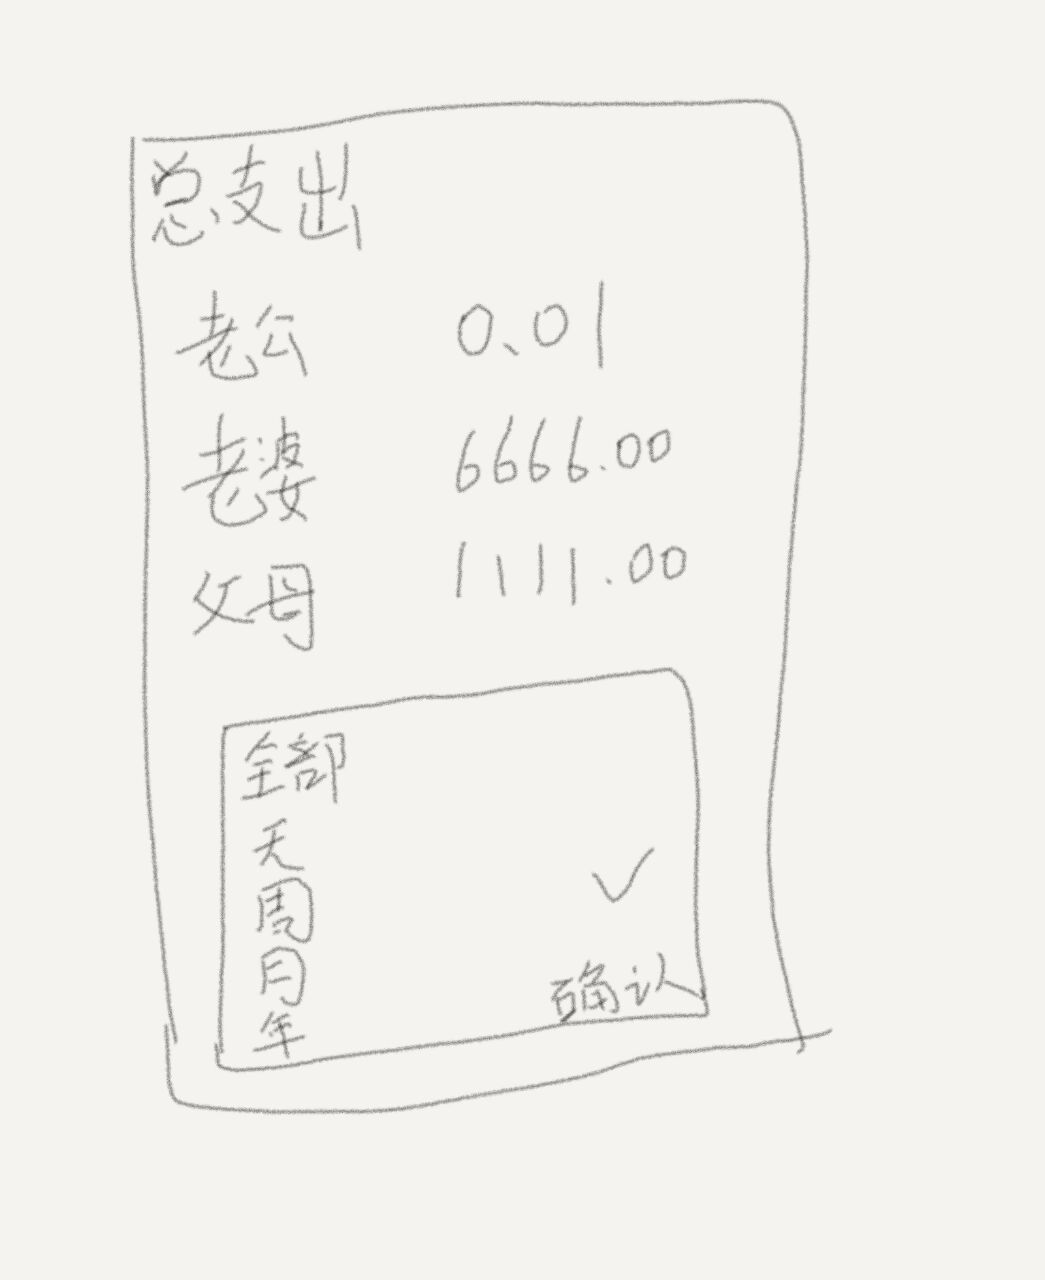 总支出
老公 0.01
老婆 6666.00
父母 1111.00
全部
天
周
月
年
确认